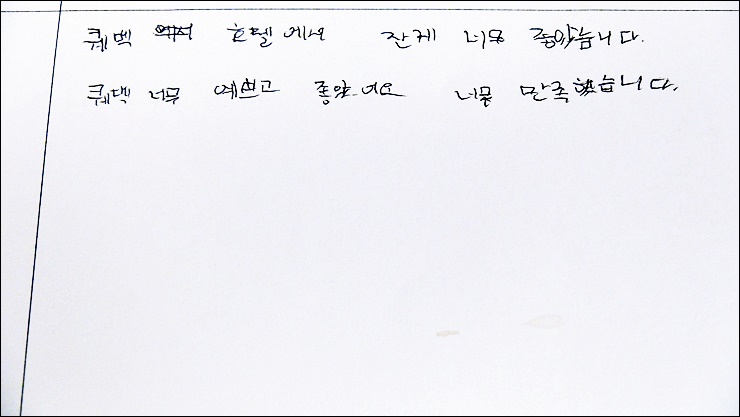 퀘벡 호텔에서 잔게 너무 좋았습니다.
퀘벡 너무 예쁘고 좋았어요 너무 만족했습니다.